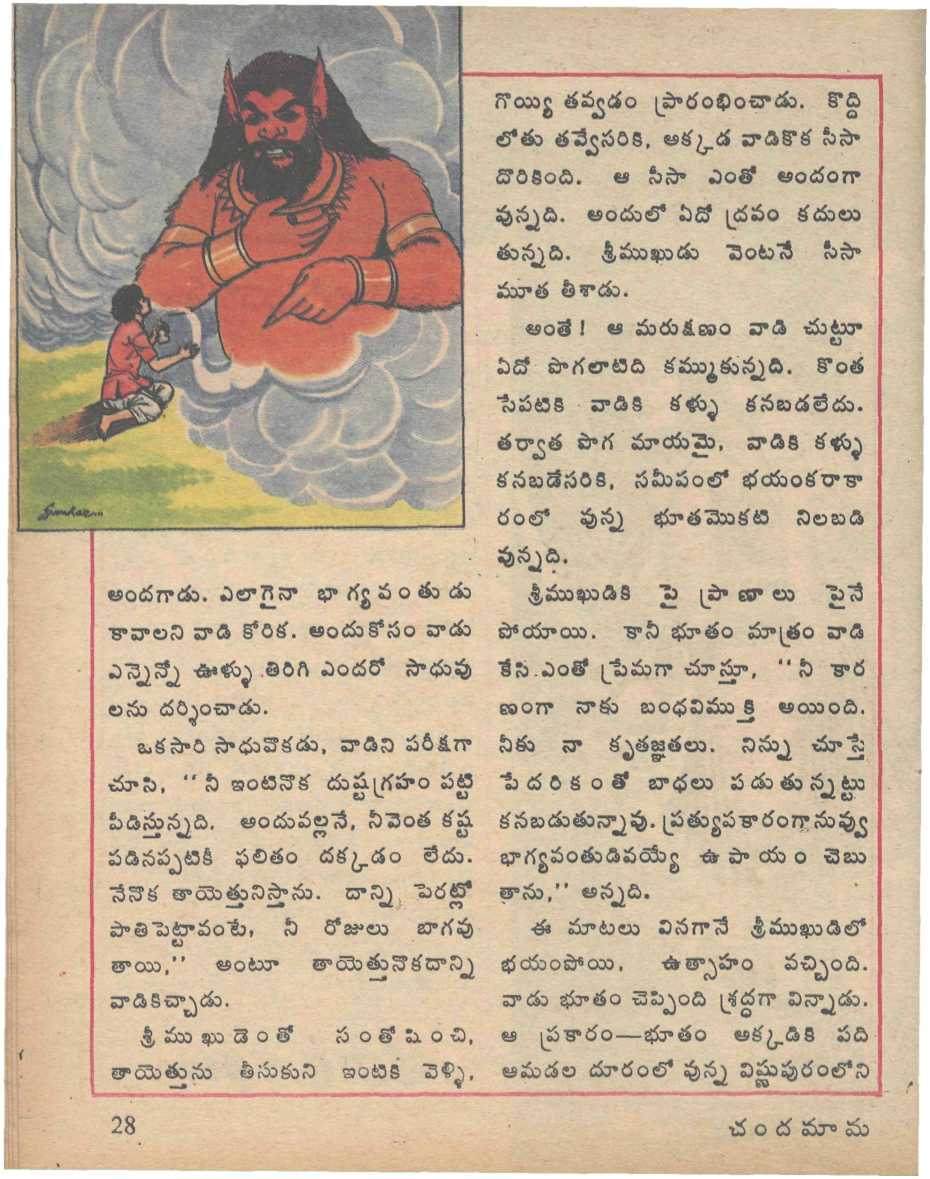 అందగాడు. ఎలాగైనా భాగ్యవంతుడు
కావాలని వాడి కోరిక. అందుకోసం వాడు
ఎన్నెన్నో ఊళ్ళు తిరిగి ఎందరో సాధువు
లను దర్శించాడు.
ఒకసారి సాధువొకడు, వాడిని పరీక్షగా
చూసి, ‘‘నీ ఇంటినొక దుష్టగ్రహం పట్టి
పీడిస్తున్నది. అందువల్లనే, నీవెంత కష్ట
పడినప్పటికీ ఫలితం దక్కడం లేదు.
నేనొక తాయెత్తునిస్తాను. దాన్ని పెరట్లో
పాతిపెట్టావంటే, నీ రోజులు బాగవు
తాయి,’’ అంటూ తాయెత్తునొకదాన్ని
వాడికిచ్చాడు.
శ్రీముఖుడెంతో సంతోషించి,
తాయెత్తును తీసుకుని ఇంటికి వెళ్ళి,
గొయ్యి తవ్వడం ప్రారంభించాడు. కొద్ది
లోతు తవ్వేసరికి, అక్కడ వాడికొక సీసా
దొరికింది. ఆ సీసా ఎంతో అందంగా
వున్నది. అందులో ఏదో ద్రవం కదులు
తున్నది. శ్రీముఖుడు వెంటనే సీసా
మూత తీశాడు.
అంతే! ఆ మరుక్షణం వాడి చుట్టూ
ఏదో పొగలాటిది కమ్ముకున్నది. కొంత
సేపటికి వాడికి కళ్ళు కనబడలేదు.
తర్వాత పొగ మాయమై, వాడికి కళ్ళు
కనబడేసరికి, సమీపంలో భయంకరాకా
రంలో వున్న భూతమొకటి నిలబడి
వున్నది.
శ్రీముఖుడికి పై ప్రాణాలు పైనే
పోయాయి. కానీ భూతం మాత్రం వాడి
కేసి ఎంతో ప్రేమగా చూస్తూ, ‘‘నీ కార
ణంగా నాకు బంధవిముక్తి అయింది.
నీకు నా కృతజ్ఞతలు. నిన్ను చూస్తే
పేదరికంతో బాధలు పడుతున్నట్టు
కనబడుతున్నావు. ప్రత్యుపకారంగా నువ్వు
భాగ్యవంతుడివయ్యే ఉపాయం చెబు
తాను,’’ అన్నది.
ఈ మాటలు వినగానే శ్రీముఖుడిలో
భయంపోయి, ఉత్సాహం వచ్చింది.
వాడు భూతం చెప్పింది శ్రద్ధగా విన్నాడు.
ఆ ప్రకారం—భూతం అక్కడికి పది
ఆమడల దూరంలో వున్న విష్ణుపురంలోని
28
చందమామ